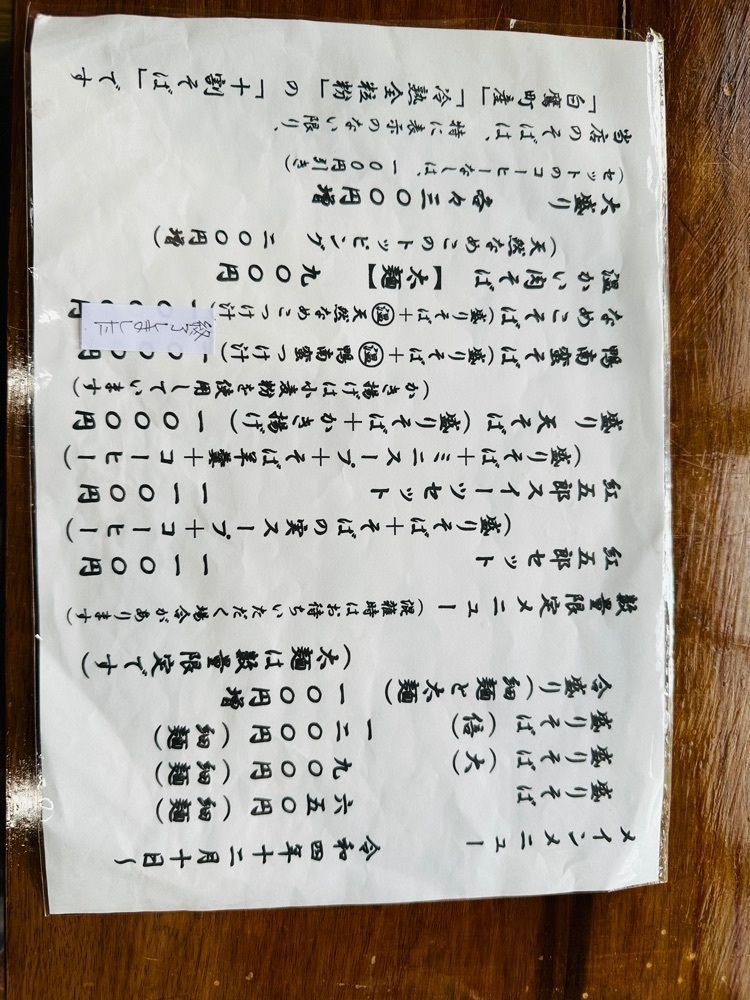 メインメニュー　令和四年十二月十日〜
盛りそば　六五〇円（細麺）
盛りそば（大）　九〇〇円（細麺）
盛りそば（倍）　一二〇〇円（細麺）
合盛り（細麺と太麺）　一〇〇円増
（太麺は数量限定です）
数量限定メニュー（混雑時はお待ちいただく場合があります）
紅五郎セット　一一〇〇円
（盛りそば＋そばの実スープ＋コーヒー）
紅五郎スイーツセット　一一〇〇円
（盛りそば＋ミニスープ＋そば羊羹＋コーヒー）
盛り天そば（盛りそば＋かき揚げ）一〇〇〇円
（かき揚げは小麦粉を使用しています）
鴨南蛮そば（盛りそば＋温鴨南蛮つけ汁）
なめこそば（盛りそば＋温天然なめこつけ汁）
終了しました
温かい肉そば【太麺】　九〇〇円
（天然なめこのトッピング　二〇〇円増）
大盛り　各々三〇〇円増
（セットのコーヒーなしは、一〇〇円引き）
当店のそばは、特に表示のない限り、
「白鷹町産」「冷熟全粒粉」の「十割そば」です